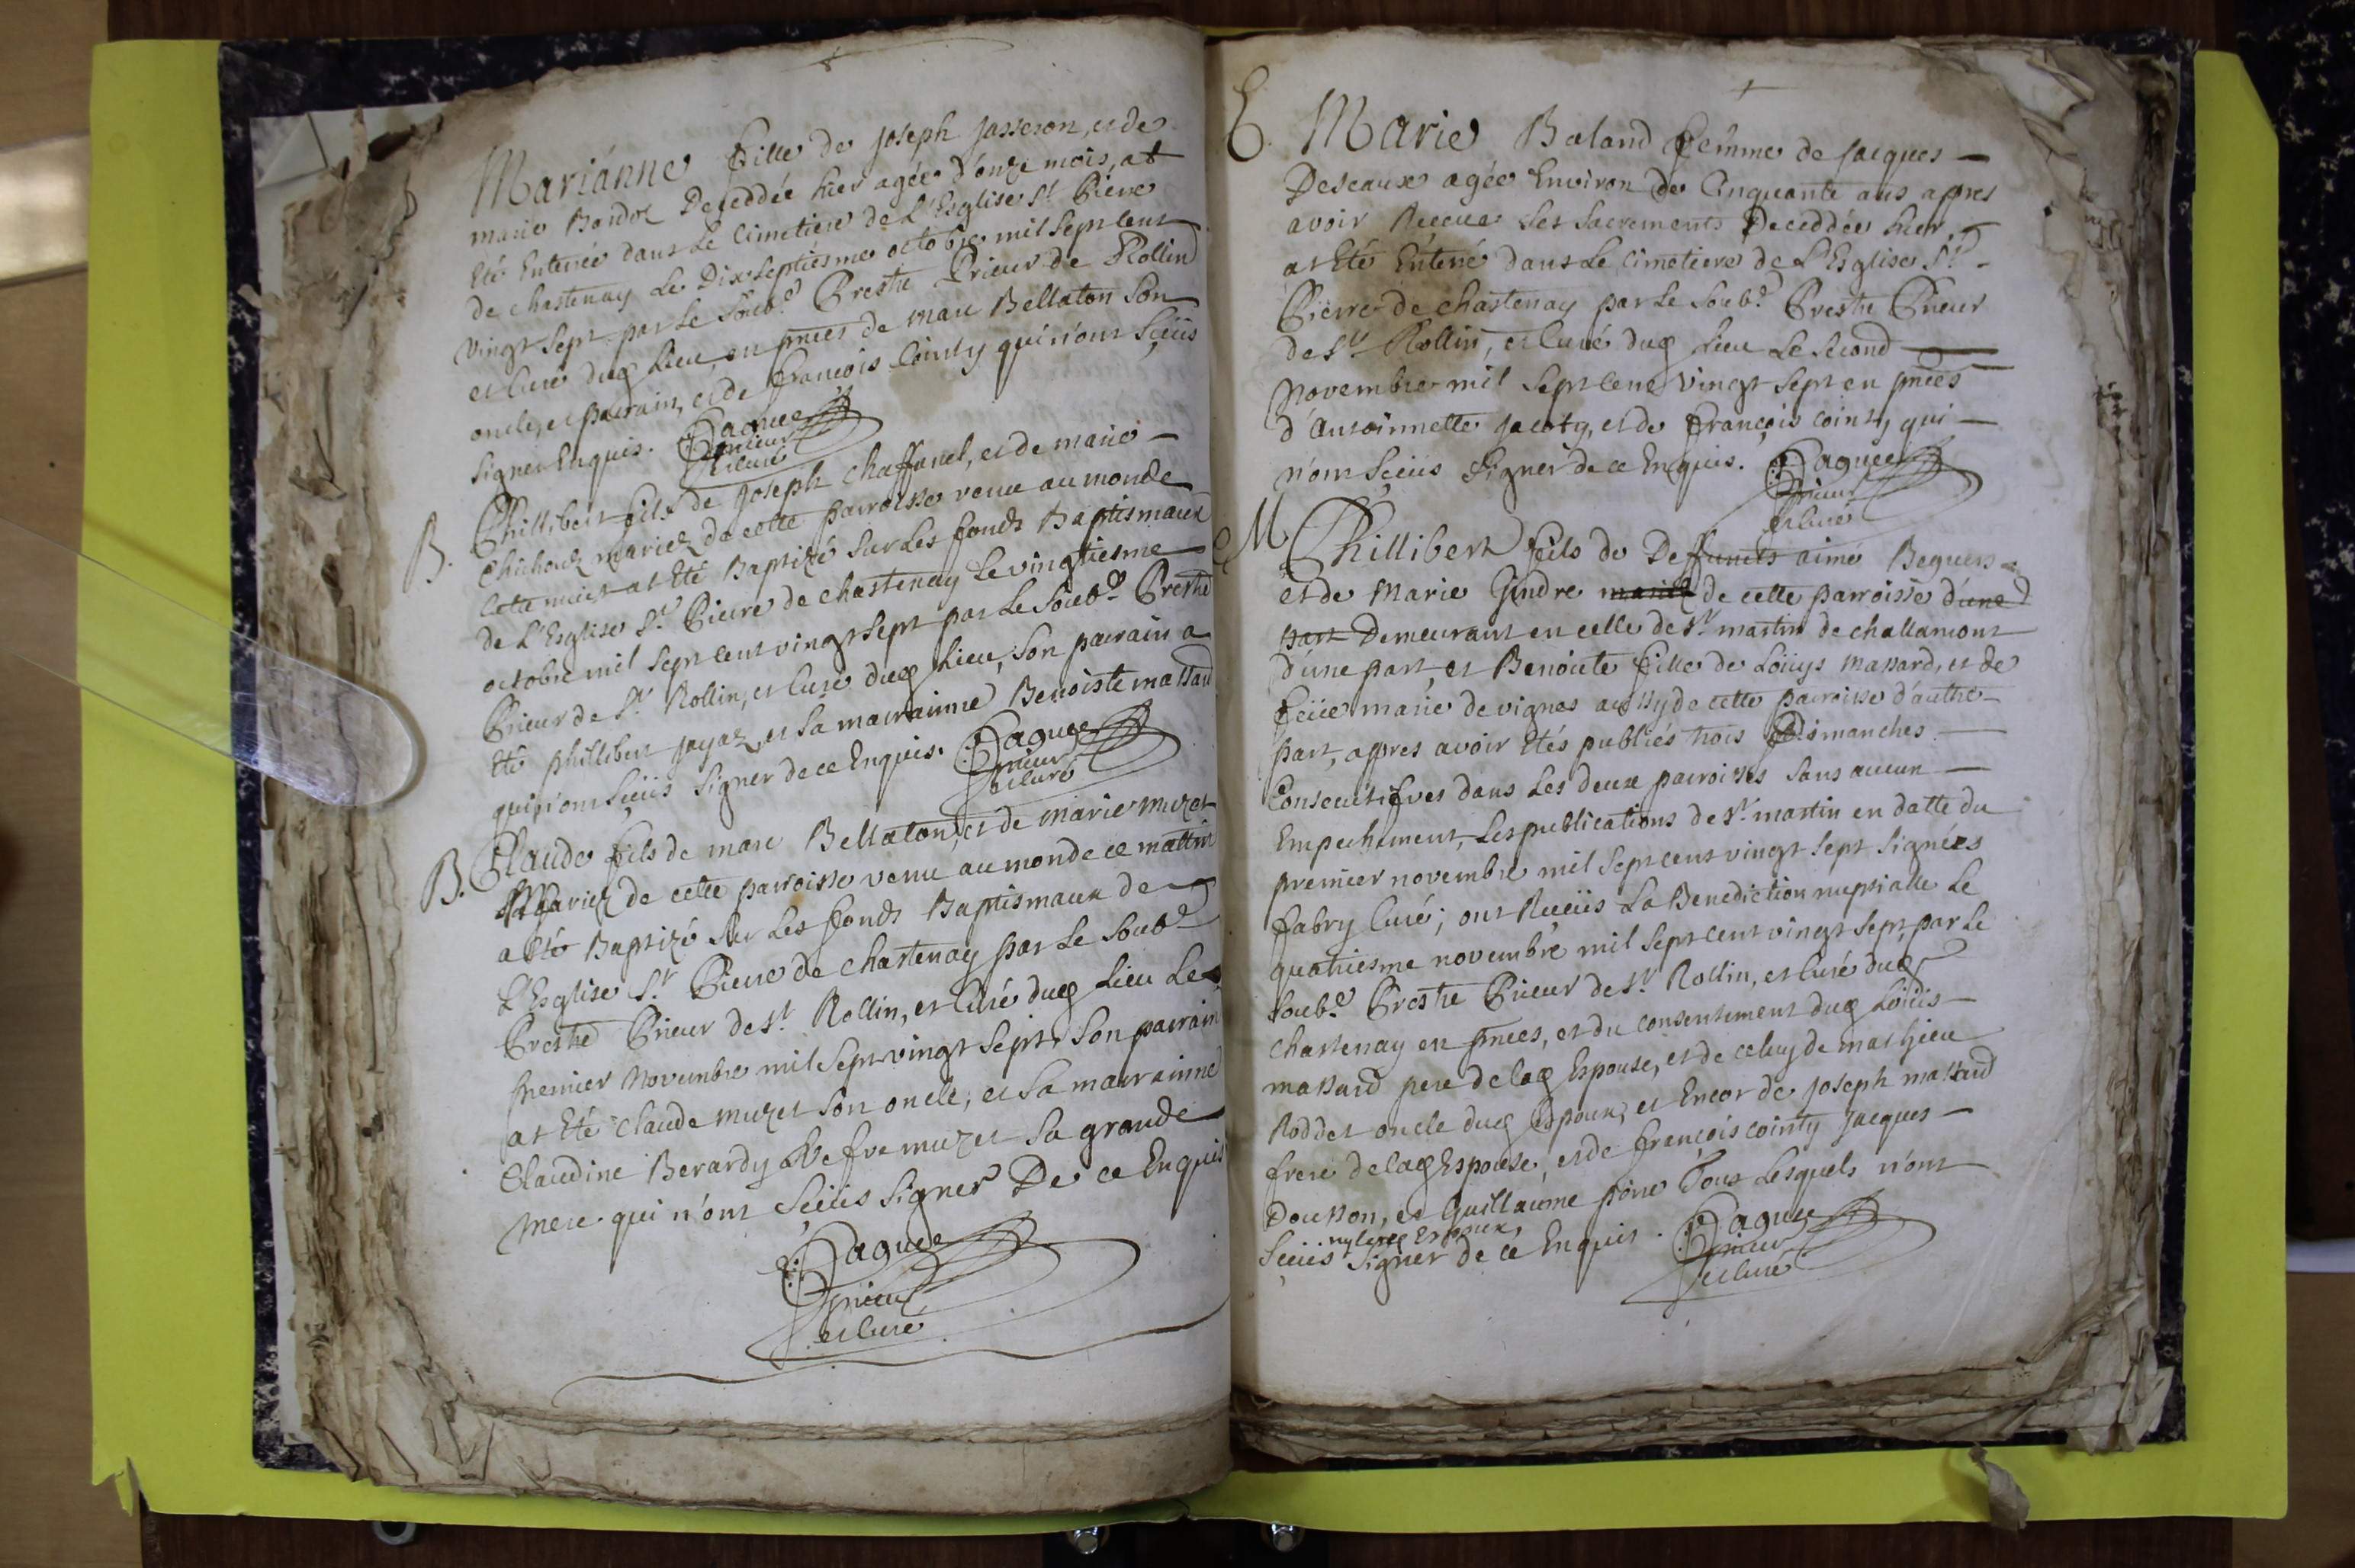 Marianne fille de Joseph Jasseron, et de
marie Bondot Deceddée hier agée d'onze mois, at
Eté Enterrée dans Le Cimetiere de L'Esglise St Pierre
de chastenay Le Dix Septiesme octobre mil Sept Cent
vingt Sept par Le Soubé Prestre Prieur de Rollin
et Curé dud Lieu, en pnces de marc Bellaton Son
oncle, et parrain, et de francois Cointy qui n'ont Sceüs
signer Enquis. Pagnee
prieur
et Curé
B. Phillibert fils de Joseph Chaffanel, et de marie
mariez de cette parroisse venu au monde
Cette nuict at Eté Baptizé Sur Les fonds Baptismaux
de L'Esglise St Pierre de chastenay Le vingtiesme
octobre mil Sept cent vingt Sept par Le Soubé Prestre
Prieur de St Rollin, et Curé dud Lieu, Son parrain a
Eté phillibert Jayaz, et Sa marrainne Benoiste massard
qui n'ont Sceüs Signer de ce Enquis. Pagnee
prieur
et Curé
B. Claude fils de marc Bellaton, et de marie muzet
Mariez de cette parroisse venu au monde ce mattin
a Eté Baptizé Sur Les fonds Baptismaux de
L'Esglise St Pierre de chastenay par Le Soubé
Prestre Prieur de St Rollin, et Curé dud Lieu Le
premier Novembre mil Sept vingt Sept, Son parrain
at Eté Claude muzet Son oncle, et Sa marrainne
Claudine Berardy Vefve muzet Sa grande
Mere qui n'ont Sceüs Signer De ce Enquis
Pagnee
prieur
et Curé
E. Marie Baland femme de Jacques
Deseaux agée Environ de Cinquante ans appres
avoir Receue Les Sacrements Deceddée hier,
at Eté Enterré dans Le Cimetiere de L'Esglise St
Pierre de chastenay par Le Soubé Prestre Prieur
de St Rollin, et Curé dud Lieu Le Second
Novembre mil Sept Cent vingt Sept en pnces
d'Antoinnette Jacoty, et de françois Cointy qui
n'ont Sceüs Signer de ce Enquis. Pagnee
prieur
et Curé
M Phillibert fils de Deffuncts aimé Beguers
et de Marie Gindre mariez de cette parroisse d'une
part Demeurant en celle de St martin de challamont
d'une part, et Benoiste fille de Loüys massard, et de
feüe marie de vignes aussy de cette parroisse d'autre
part, appres avoir Etés publiés trois Dismanches
Consecutifves dans Les deux parroisses Sans aucun
Empechement, Les publications de St martin en datte du
premier novembre mil Sept cent vingt Sept Signées
fabry Curé; ont Receüs La Benediction nuptialle Le
quatriesme novembre mil Sept cent vingt Sept par Le
Soubé Prestre Prieur de St Rollin, et Curé dud
chastenay en pnces, et du consentement dud Loüis
massard pere de lad Espouse, et de celuy de mathieu
Roddet oncle dud Espoux, et Encor de Joseph massard
frere de lad Espouse, et de françois cointy Jacques
Dousson, et Guillaume pône Tous Lesquels n'ont
ny lesd Espoux,
Sceüs Signer de ce Enquis. Pagnee
prieur
et Curé